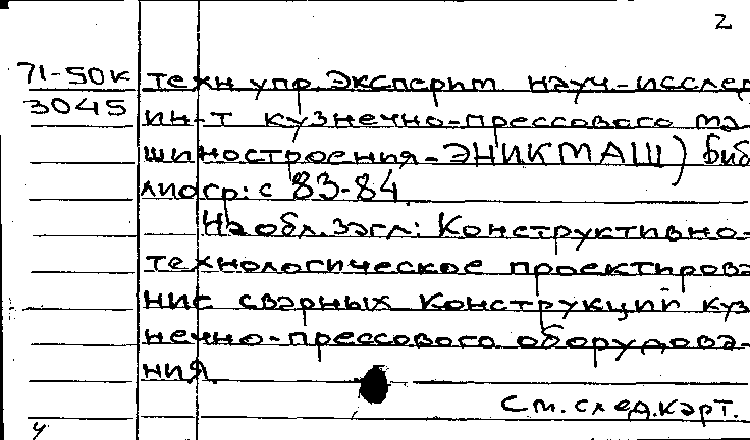 2
71-50к техн упр. Эксперим науч-исслед
3045 ин-т кузнечно-прессового ма
шиностроения-ЭНИКМАШ) биб
лиогр: с 83-84.
На обл. загл: Конструктивно-
технологическое проектирова
ние сварных конструкций куз
нечно-прессового оборудова-
ния.
См. след. карт.